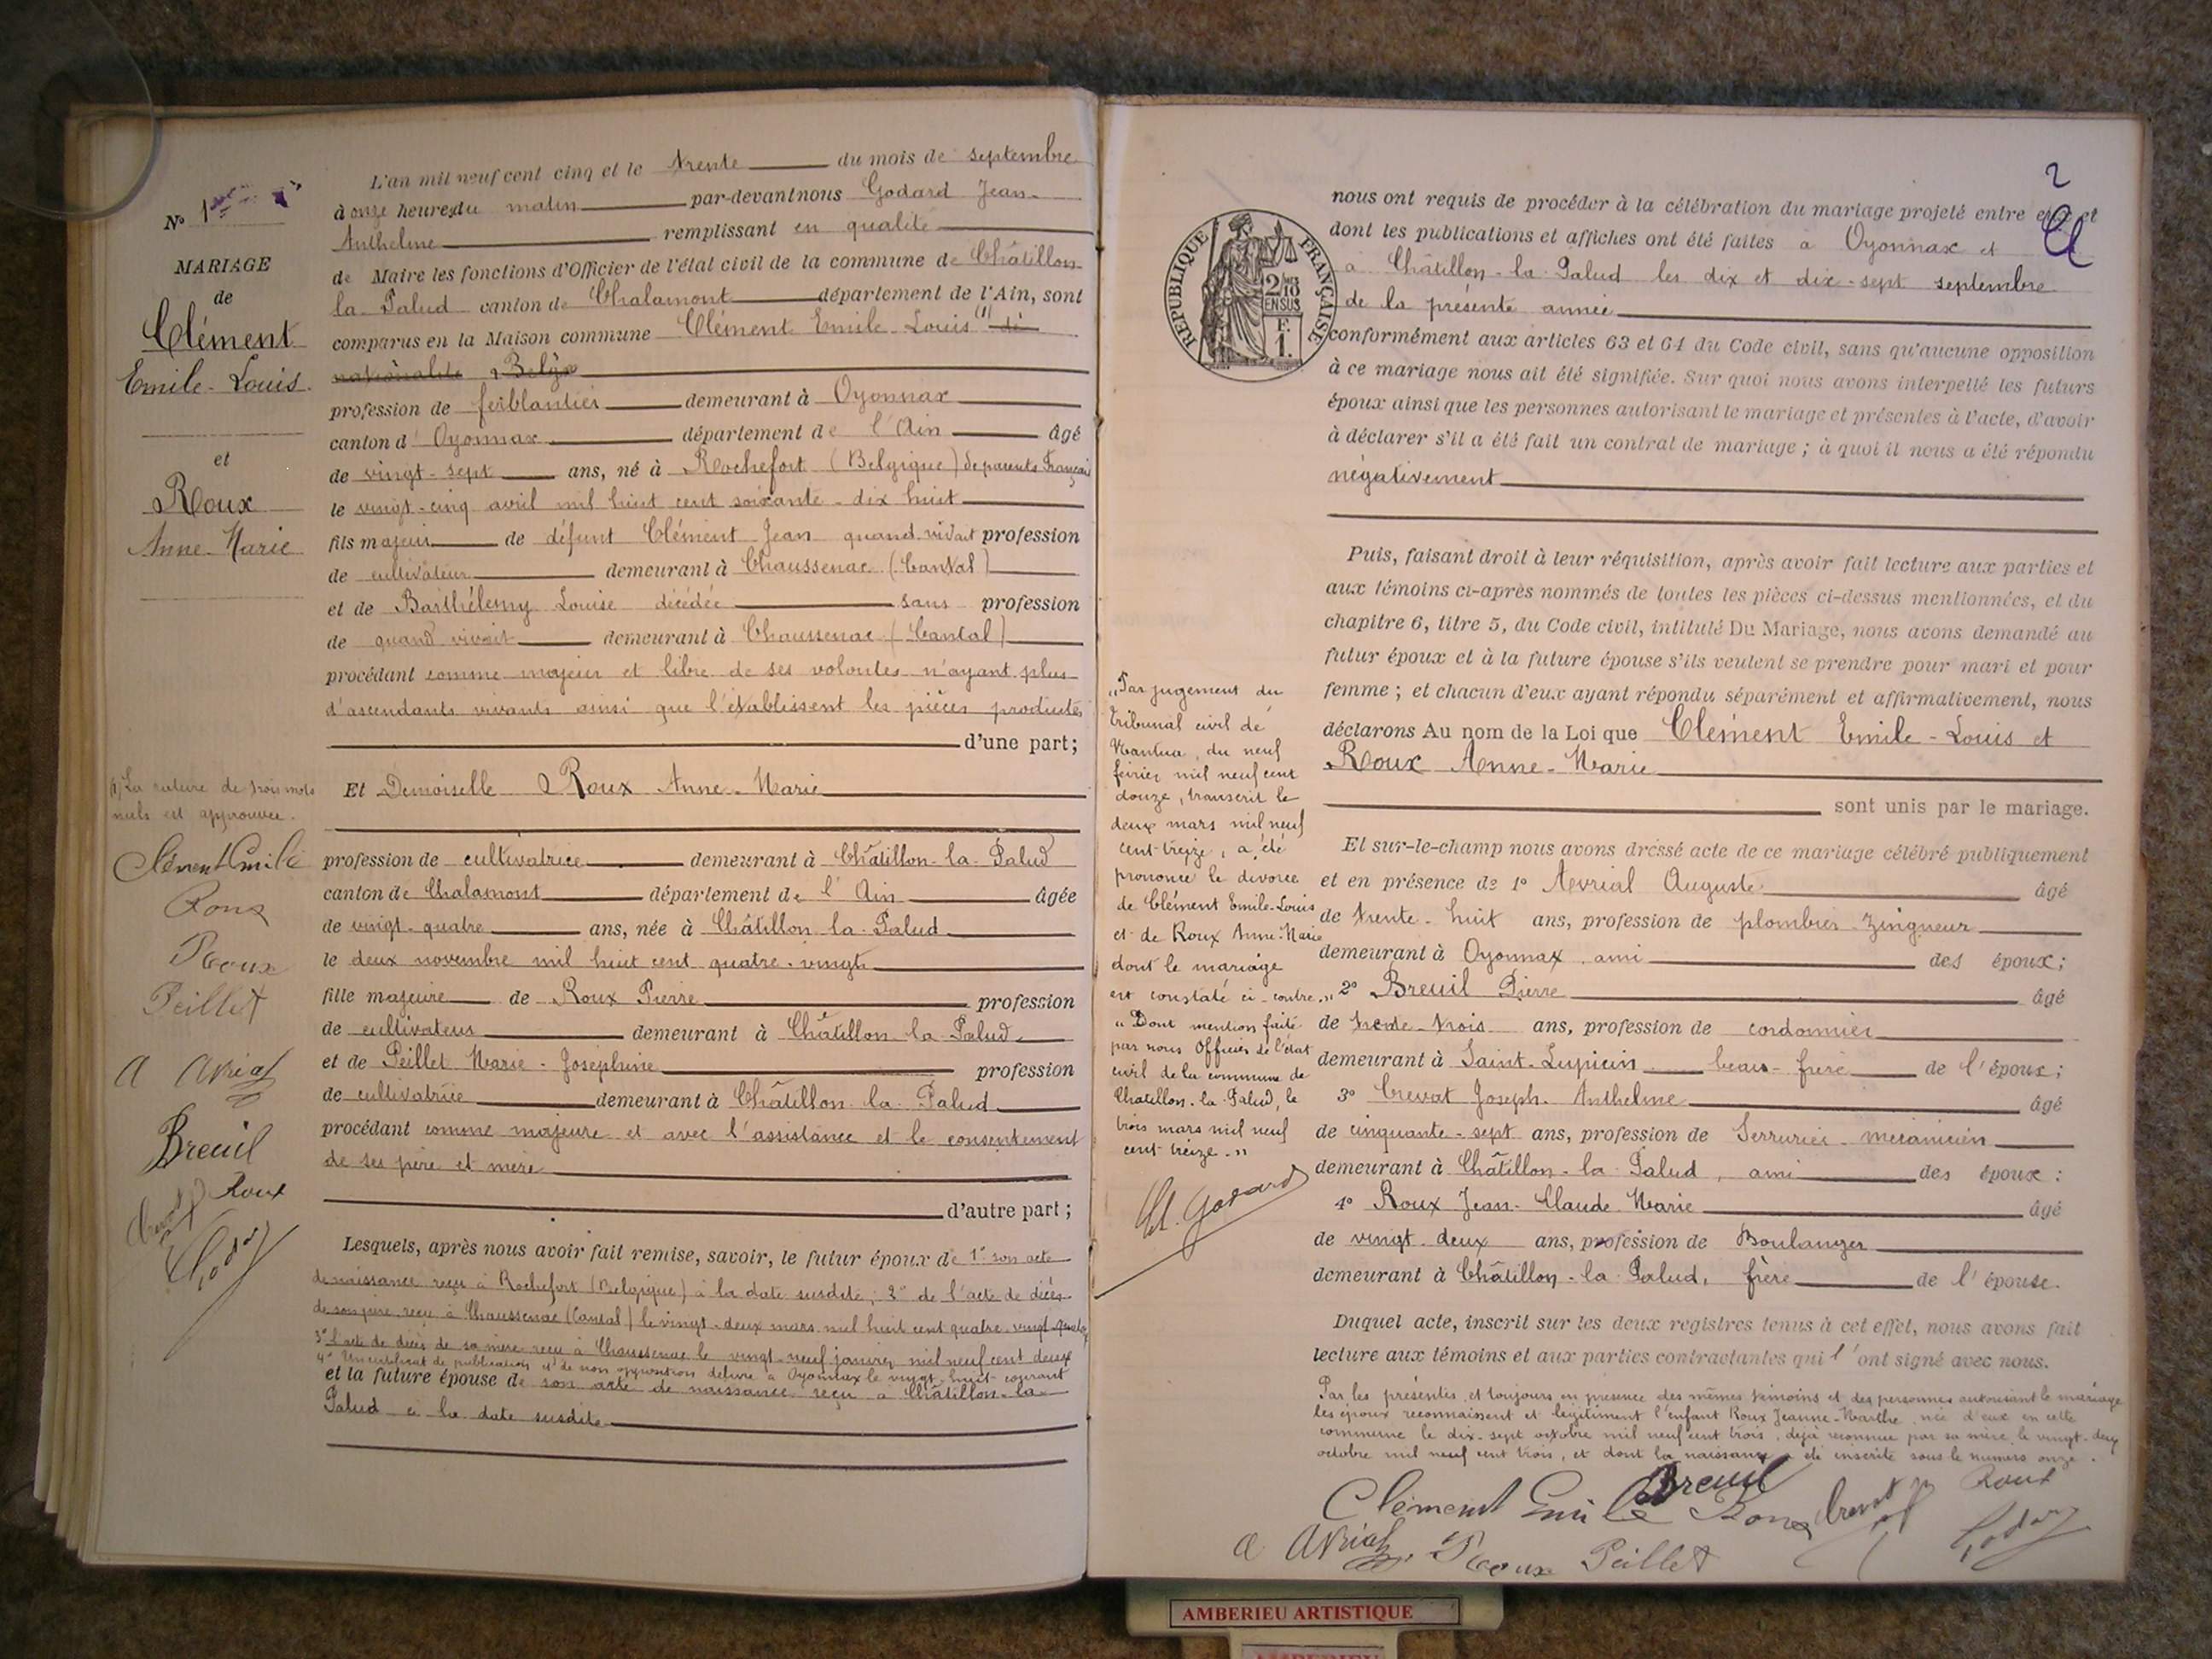 L'an mil neuf cent cinq et le trente du mois de septembre
à onze heures du matin par-devant nous Godard Jean-
Anthelme remplissant en qualité
de Maire les fonctions d'Officier de l'état civil de la commune de Châtillon-
la-Palud canton de Chalamont département de l'Ain, sont
comparus en la Maison commune Clément Emile-Louis (1) de
nationalité Belge
profession de ferblantier demeurant à Oyonnax
canton d'Oyonnax département de l'Ain âgé
de vingt-sept ans, né à Rochefort (Belgique) de parents Français
le vingt-cinq avril mil huit cent soixante-dix huit
fils majeur de défunt Clément Jean quand vivait profession
de cultivateur demeurant à Chaussenac (Cantal)
et de Barthélemy Louise décédée sans profession
de quand vivait demeurant à Chaussenac (Cantal)
procédant comme majeur et libre de ses volontés n'ayant plus
d'ascendants vivants ainsi que l'établissent les pièces produites
d'une part;
Et Demoiselle Roux Anne-Marie
profession de cultivatrice demeurant à Châtillon-la-Palud
canton de Chalamont département de l'Ain âgée
de vingt-quatre ans, née à Châtillon-la-Palud
le deux novembre mil huit cent quatre-vingt
fille majeure de Roux Pierre profession
de cultivateur demeurant à Châtillon-la-Palud
et de Peillet Marie-Joséphine profession
de cultivatrice demeurant à Châtillon-la-Palud
procédant comme majeure et avec l'assistance et le consentement
de ses père et mère
d'autre part;
Lesquels, après nous avoir fait remise, savoir, le futur époux de 1° son acte
de naissance reçu à Rochefort (Belgique) à la date susdite; 2° de l'acte de décès
de son père reçu à Chaussenac (Cantal) le vingt-deux mars mil huit cent quatre-vingt-quatorze
3° l'acte de décès de sa mère reçu à Chaussenac le vingt-neuf janvier mil neuf cent deux
4° Un certificat de publication et de non opposition délivré à Oyonnax le vingt-huit courant
et la future épouse de son acte de naissance reçu à Châtillon-la-
Palud à la date susdite
N° 1
MARIAGE
de
Clément
Emile-Louis
et
Roux
Anne-Marie
(1) La rature de trois mots
nuls est approuvée.
Clément Emile
Roux
Roux
Peillet
A Avrial
Breuil
Roux
Crevat
Godard
2
REPUBLIQUE FRANÇAISE
nous ont requis de procéder à la célébration du mariage projeté entre eux et
dont les publications et affiches ont été faites à Oyonnax et
à Châtillon-la-Palud les dix et dix-sept septembre
de la présente année
conformément aux articles 63 et 64 du Code civil, sans qu'aucune opposition
à ce mariage nous ait été signifiée. Sur quoi nous avons interpellé les futurs
époux ainsi que les personnes autorisant le mariage et présentes à l'acte, d'avoir
à déclarer s'il a été fait un contrat de mariage; à quoi il nous a été répondu
négativement
Puis, faisant droit à leur réquisition, après avoir fait lecture aux parties et
aux témoins ci-après nommés de toutes les pièces ci-dessus mentionnées, et du
chapitre 6, titre 5, du Code civil, intitulé Du Mariage, nous avons demandé au
futur époux et à la future épouse s'ils veulent se prendre pour mari et pour
femme; et chacun d'eux ayant répondu séparément et affirmativement, nous
déclarons Au nom de la Loi que Clément Emile-Louis et
Roux Anne-Marie
sont unis par le mariage.
Et sur-le-champ nous avons dressé acte de ce mariage célébré publiquement
et en présence de 1° Avrial Auguste âgé
de trente-huit ans, profession de plombier-zingueur
demeurant à Oyonnax, ami des époux;
2° Breuil Pierre âgé
de trente-trois ans, profession de cordonnier
demeurant à Saint-Lupicin beau-frère de l'époux;
3° Crevat Joseph-Anthelme âgé
de cinquante-sept ans, profession de Serrurier-mécanicien
demeurant à Châtillon-la-Palud, ami des époux:
4° Roux Jean-Claude Marie âgé
de vingt-deux ans, profession de Boulanger
demeurant à Châtillon-la-Palud, frère de l'épouse.
Duquel acte, inscrit sur les deux registres tenus à cet effet, nous avons fait
lecture aux témoins et aux parties contractantes qui l'ont signé avec nous.
Par les présentes et toujours en présence des mêmes témoins et des personnes autorisant le mariage
les époux reconnaissent et légitiment l'enfant Roux Jeanne-Marthe, née d'eux en cette
commune le dix-sept octobre mil neuf cent trois, déjà reconnue par sa mère le vingt-deux
octobre mil neuf cent trois, et dont la naissance a été inscrite sous le numéro onze.
Clément Emile Breuil Roux Crevat Roux
A Avrial Roux Peillet Godard
„Par jugement du
tribunal civil de
Nantua, du neuf
février mil neuf cent
douze, transcrit le
deux mars mil neuf
cent treize, a été
prononcé le divorce
de Clément Emile-Louis
et de Roux Anne-Marie
dont le mariage
est constaté ci-contre„
„Dont mention faite
par nous Officier de l'état
civil de la commune de
Chatillon-la-Palud, le
trois mars mil neuf
cent treize.„
Godard
AMBERIEU ARTISTIQUE
AMBERIEU